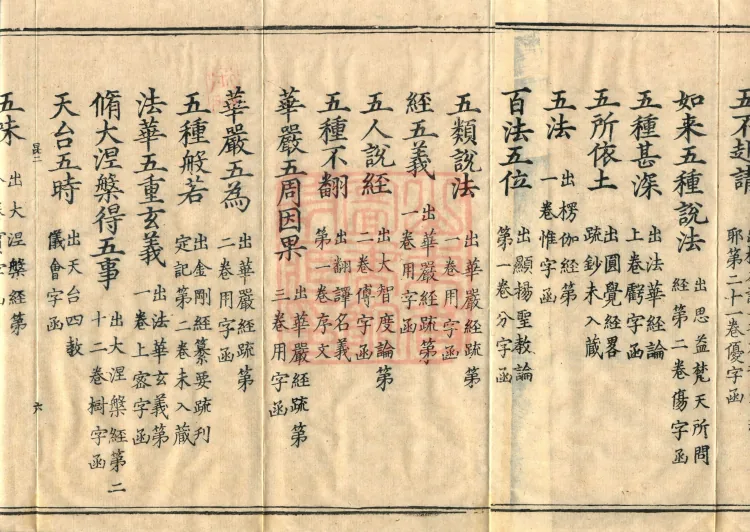 五不赴請
耶第二十一卷優字函
如来五種說法 出思益梵天所問
經第二卷傷字函
五種甚深 出法華經論
上卷虧字函
五所依土 出圓覺經畧
疏鈔未入蔵
五法 出楞伽經第
一卷惟字函
百法五位 出顯揚聖教論
第一卷分字函
五類說法 出華嚴經疏第
一卷用字函
經五義 出華嚴經疏第
一卷用字函
五人說經 出大智度論第
二卷傳字函
五種不翻 出翻譯名義
第一卷序文
華嚴五周因果 出華嚴經疏第
三卷用字函
華嚴五為 出華嚴經疏第
二卷用字函
五種般若 出金剛經纂要疏刊
定記第二卷未入蔵
法華五重玄義 出法華玄義第
一卷上宻字函
脩大涅槃得五事 出大涅槃經第二
十二卷樹字函
天台五時 出天台四教
儀會字函
六
五味 出大涅槃經第